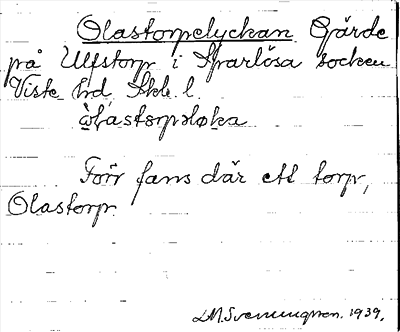 Olastorpslyckan Gärde
på Ulfstorp i Sparlösa socken
Viste hd, Skb. l.
Förr fans där ett torp,
Olastorp.
L.M. Svenungsson. 1939.